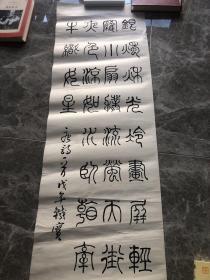 銀燭秋光冷畫屏輕
羅小扇撲流螢天街
夜色涼如水臥看牽
牛織女星